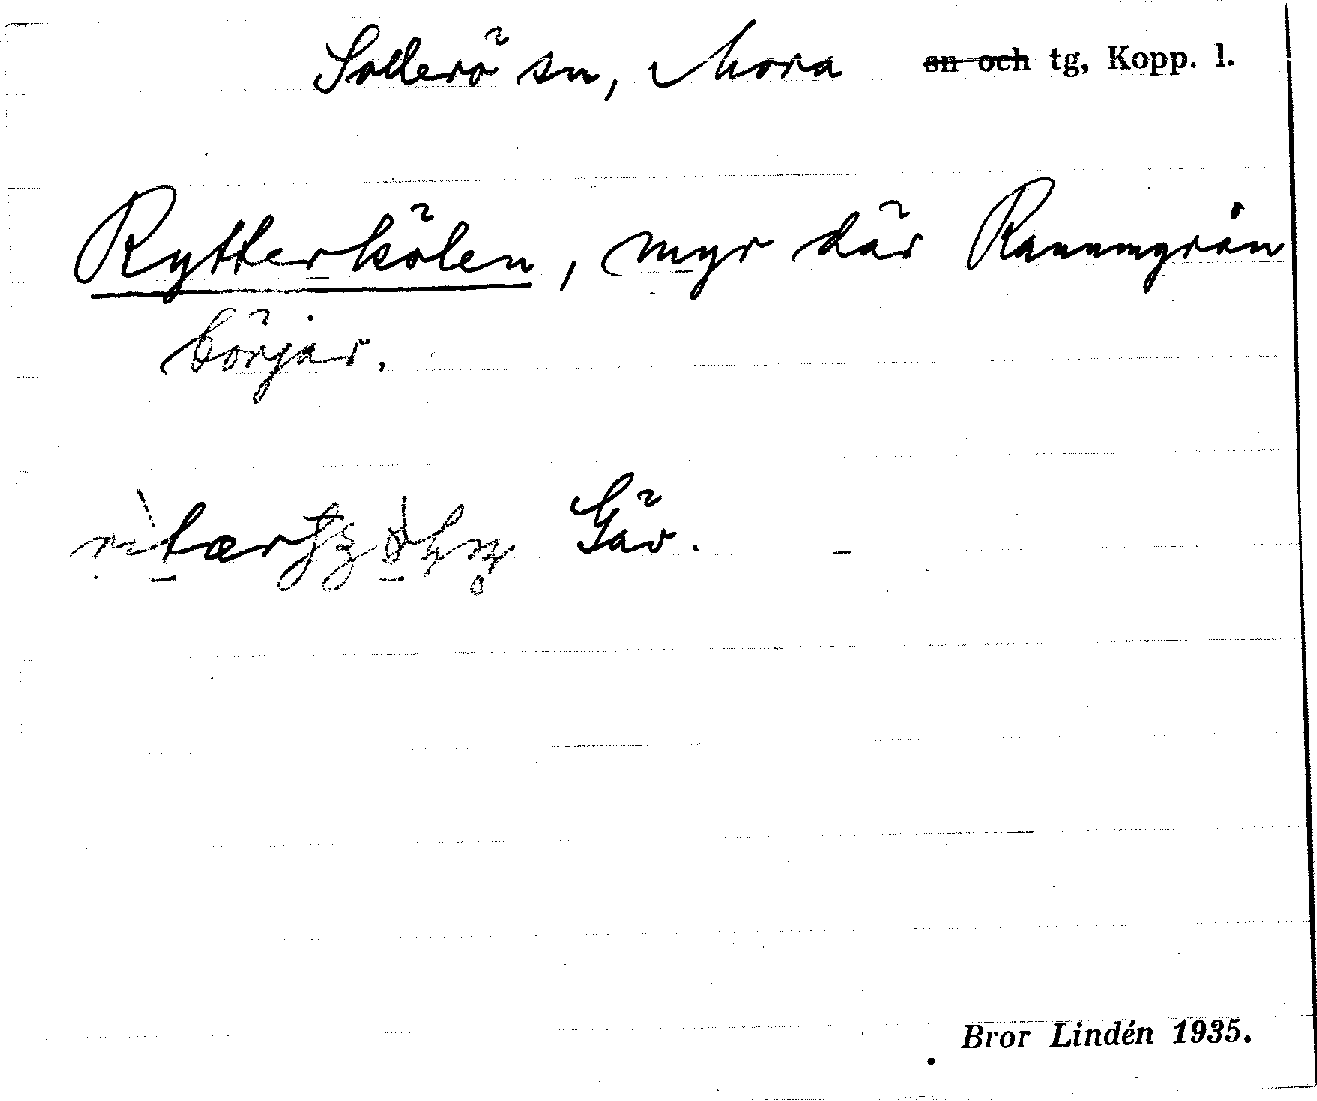 Sollerö sn, Mora sn och tg, Kopp. l.
Rytterkölen, myr där Rammgrån
börjar.
Gäv.
Bror Lindén 1935.